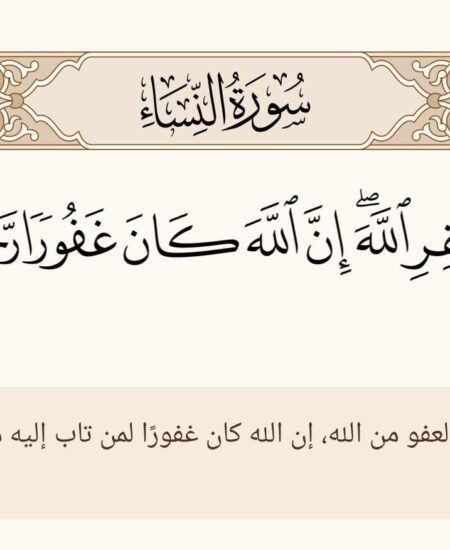 سُورَةُ النِّسَاءِ
ٱللَّهَۖ إِنَّ ٱللَّهَ كَانَ غَفُورٗا
لعفو من الله، إن الله كان غفورًا لمن تاب إليه